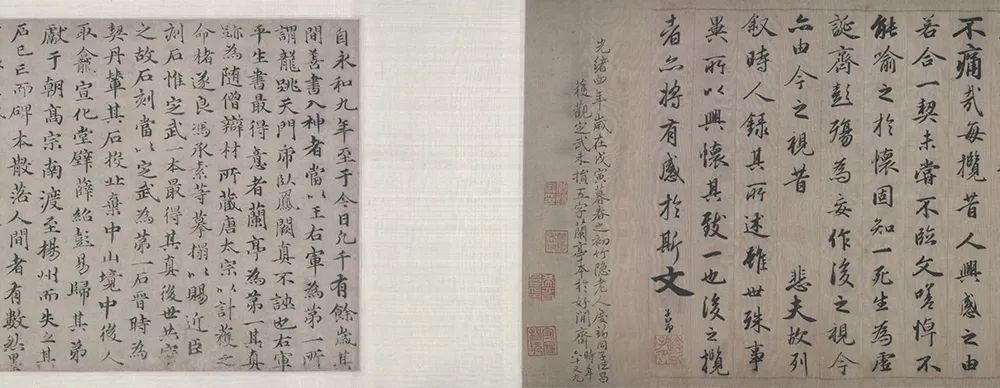 不痛哉每攬昔人興感之由
若合一契未嘗不臨文嗟悼不
能喻之於懷固知一死生為虛
誕齊彭殤為妄作後之視今
亦由今之視昔 悲夫故列
叙時人錄其所述雖世殊事
異所以興懷其致一也後之攬
者亦將有感於斯文
子昂
光緒四年歲在戊寅暮春之初竹隱老人
獲觀定武未損五字蘭亭本於好閒齋時年六十又九
自永和九年至于今日凡千有餘歲其
間善書入神者當以王右軍為第一所
謂龍跳天門虎臥鳳閣真不誣也右軍
平生書最得意者蘭亭為第一其真
跡為隨僧辯材所藏唐太宗以計獲之
命褚遂良馮承素等摹搨以賜近臣
刻石惟定武一本最得其真後世共寶
之故石刻當以定武為第一石晉時為
契丹輦其石投此棄中山境中後人
取龕宣化堂壁薛紹彭易歸其弟
獻于朝高宗南渡至楊州而失之其
石已亡而碑本散落人間者有數然墨